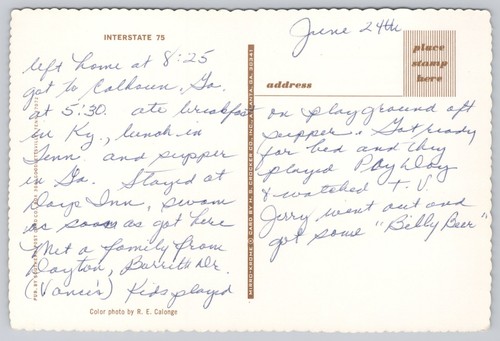 INTERSTATE 75
June 24th
place
stamp
here
address
left home at 8:25
got to Calhoun, Ga.
at 5:30. ate breakfast
in Ky., lunch in
Tenn. and supper
in Ga. Stayed at
Days Inn, swam
as soon as got here
Met a family from
Dayton, Barrett Dr.
(Vance's) Kids played
on playground aft
supper. Got ready
for bed and they
played Pay Day
& watched T.V.
Jerry went out and
got some "Billy Beer"
Color photo by R. E. Calonge